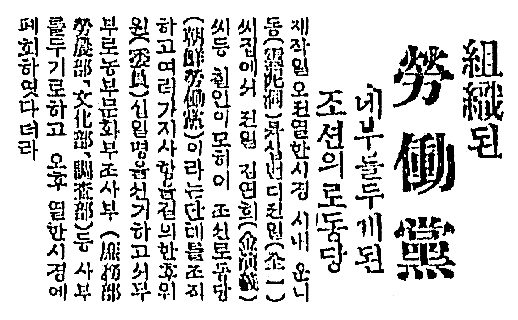 組織된
勞働黨
네부를두게된
조선의로동당
재작일오전열한시경 시내 운니
동(雲泥洞)십번디전일(全一)
씨집에서 전일 김연희(金演羲)
씨등 칠인이모히어 조선로동당
(朝鮮勞働黨)이라는단톄를조직
하고여러가지사항을결의한후위
원(委員)십일명을선거하고서무
부로농부문화부조사부(庶務部
勞農部、文化部、調査部)등 사부
를두기로하고 오후 열한시경에
폐회하엿다더라